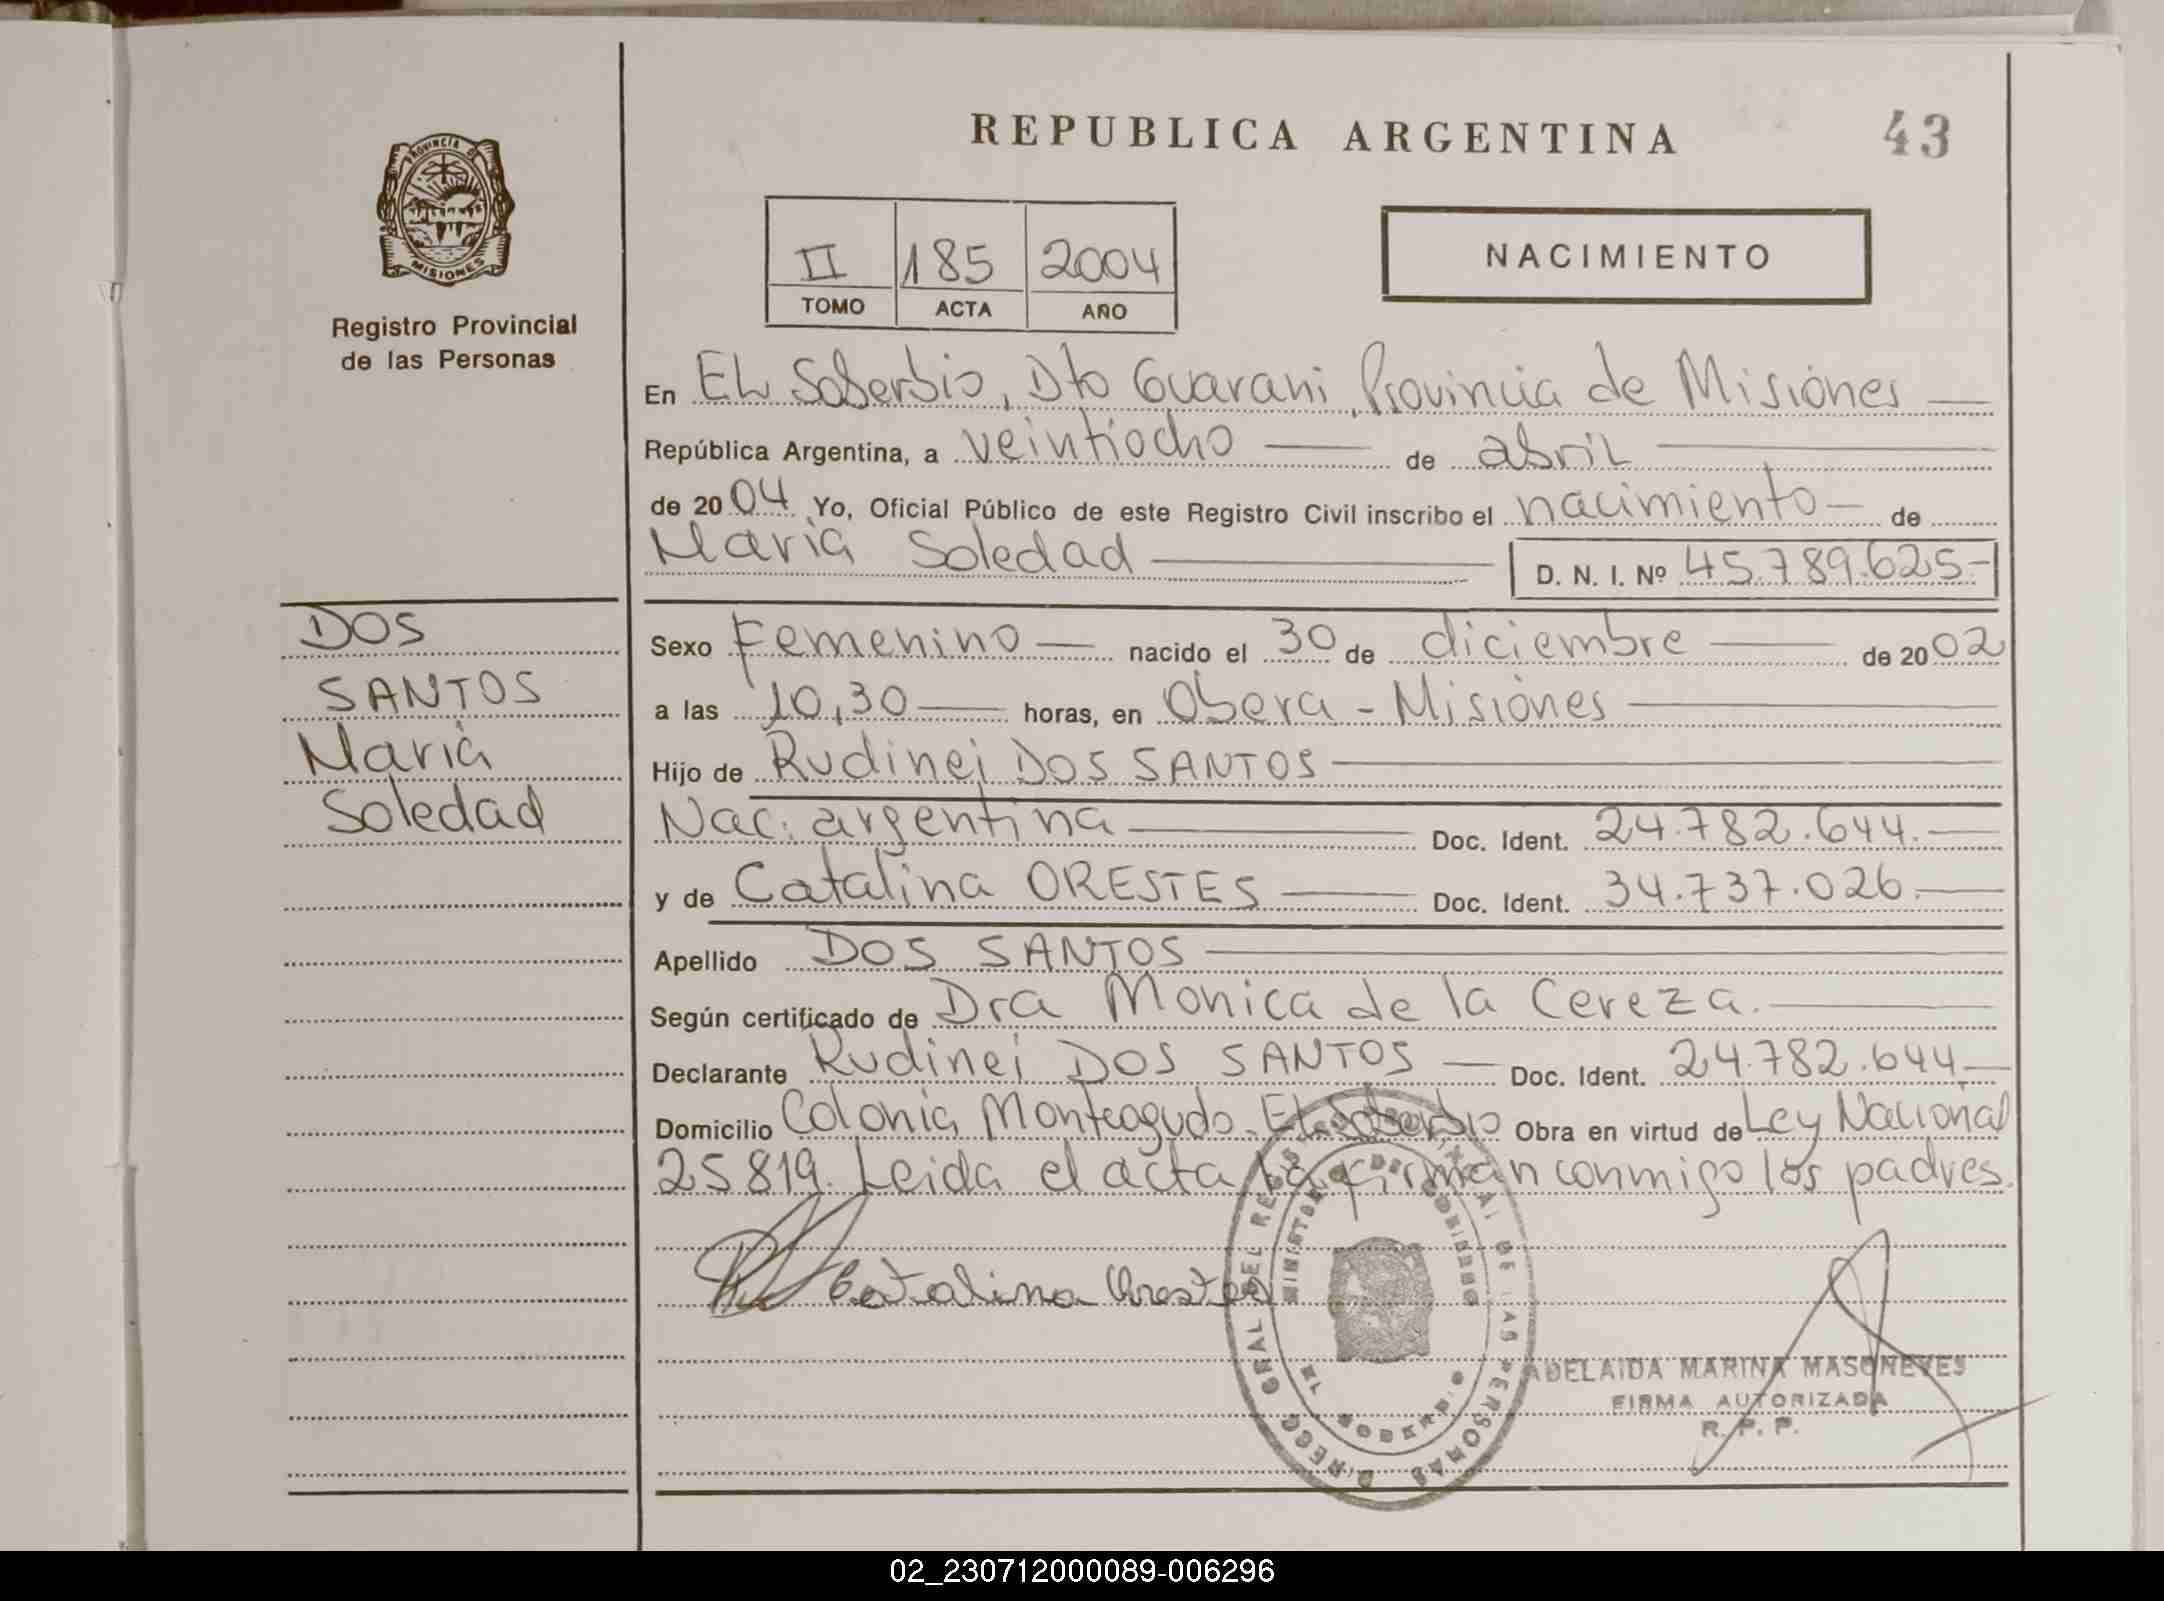 REPUBLICA ARGENTINA
43
PROVINCIA DE
MISIONES
Registro Provincial
de las Personas
II 185 2004
TOMO ACTA AÑO
NACIMIENTO
En El Soberbio, Dto Guarani, Provincia de Misiones
República Argentina, a veintiocho de abril
de 2004 Yo, Oficial Público de este Registro Civil inscribo el nacimiento de
Maria Soledad D. N. I. Nº 45.789.625-
DOS
SANTOS
Maria
Soledad
Sexo Femenino nacido el 30 de diciembre de 2002
a las 10,30 horas, en Obera - Misiones
Hijo de Rudinei DOS SANTOS
Nac. argentina Doc. Ident. 24.782.644.
y de Catalina ORESTES Doc. Ident. 34.737.026.
Apellido DOS SANTOS
Según certificado de Dra Monica de la Cereza.
Declarante Rudinei DOS SANTOS Doc. Ident. 24.782.644
Domicilio Colonia Monteagudo. El Soberbio Obra en virtud de Ley Nacional
25819. Leida el acta la firman conmigo los padres.
Catalina Orestes
ADELAIDA MARINA MASONEVES
FIRMA AUTORIZADA
R. P. P.
EL SOBERBIO
02_230712000089-006296